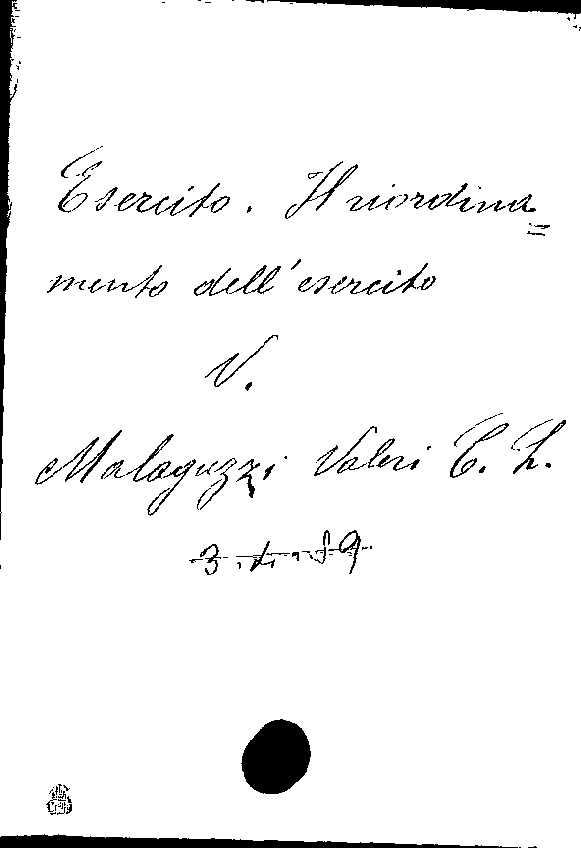 Esercito. Il riordina=
mento dell'esercito
V.
Malaguzzi Valeri C. L.